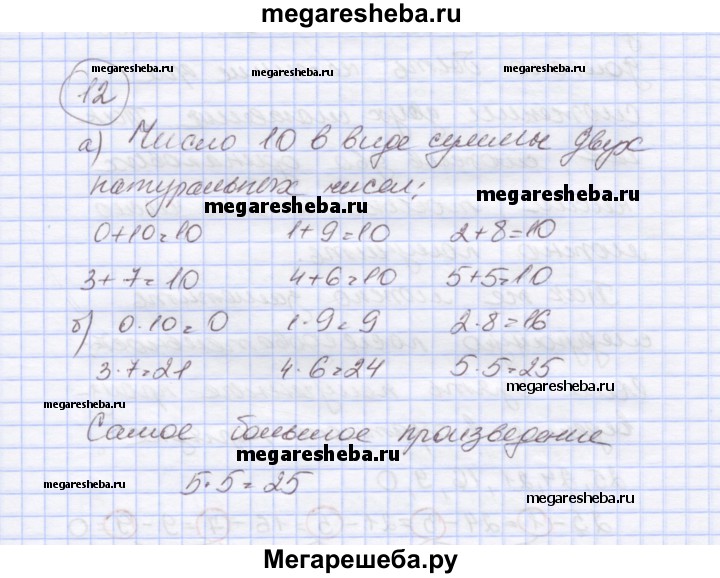 megaresheba.ru
megaresheba.ru megaresheba.ru megaresheba.ru
12
а) Число 10 в виде суммы двух
натуральных чисел:
megaresheba.ru megaresheba.ru
0+10=10 1+9=10 2+8=10
3+7=10 4+6=10 5+5=10
б) 0·10=0 1·9=9 2·8=16
3·7=21 4·6=24 5·5=25
megaresheba.ru
megaresheba.ru
Самое большое произведение
megaresheba.ru
5·5=25
megaresheba.ru megaresheba.ru
megaresheba.ru
Мегарешеба.ру